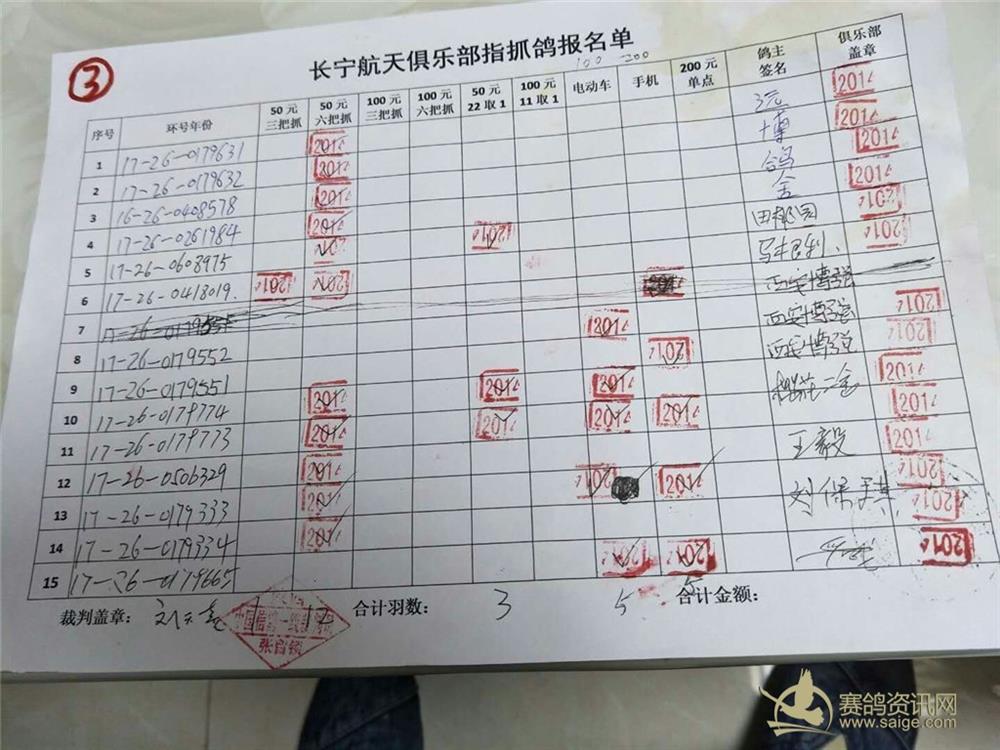 ③
长宁航天俱乐部指抓鸽报名单
100 200
序号 环号年份 50元三把抓 50元六把抓 100元三把抓 100元六把抓 50元22取1 100元11取1 电动车 手机 200元单点 鸽主签名 俱乐部盖章
1 17-26-0179631 201 201
2 17-26-0179632 201 201
3 16-26-0408578 201 鸽 201
4 17-26-0261984 201 金 201
5 17-26-0608975 201 201
6 17-26-0418019. 201 201
7 201 西安博强
8 17-26-0179552 201 西安博强 201
9 17-26-0179551 201 201 201 西安博强 201
10 17-26-0179774 201 201 201 201 201
11 17-26-0179773 201 201
12 17-26-0506329 201 201 201 王毅 201
13 17-26-0179333 201 201
14 17-26-0179334 201 201
15 17-26-0179665 201 201 201
裁判盖章: 1 12 合计羽数: 3 5 5 合计金额:
赛鸽资讯网
www.saige.com